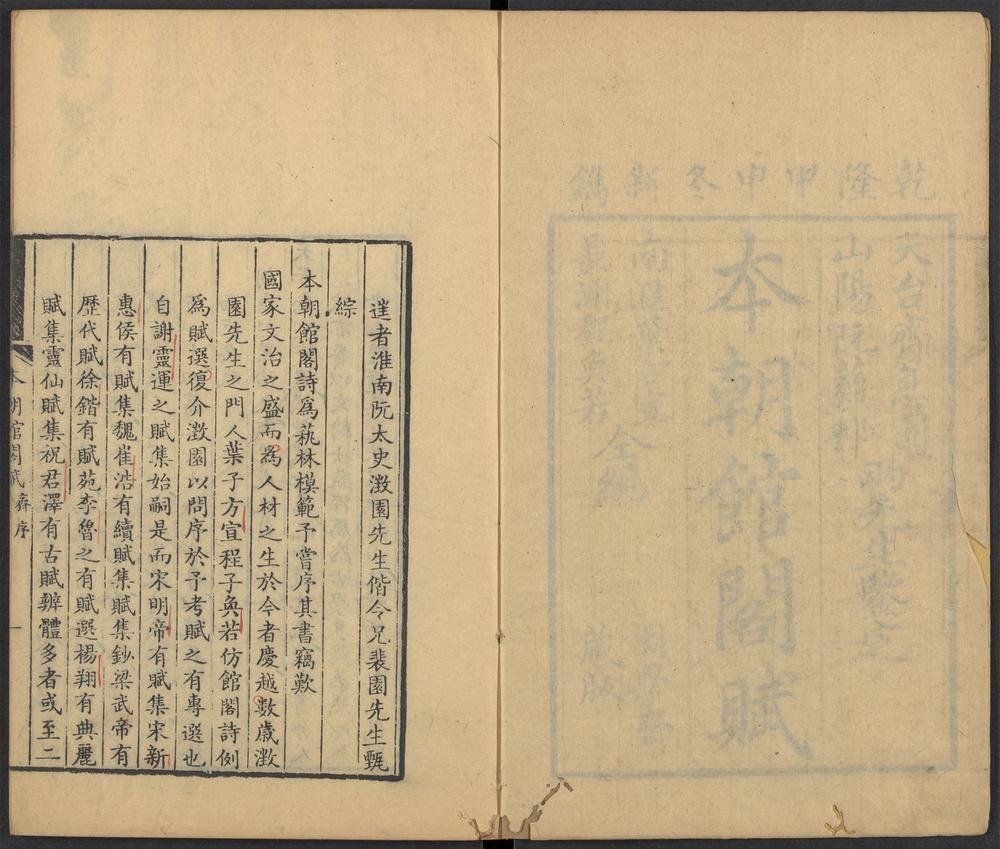 乾隆甲申冬新鐫
天台齊
山陽阮
先生鑒定
本朝館閣賦
南
長洲程奐若
全編
藏版
者淮南阮太史澂園先生偕令兄裴園先生甄
綜
本朝館閣詩爲蓺林模範予嘗序其書竊歎
國家文治之盛而爲人材之生於今者慶越數歲澂
園先生之門人葉子方宣程子奐若仿館閣詩例
爲賦選復介澂園以問序於予考賦之有專選也
自謝靈運之賦集始嗣是而宋明帝有賦集宋新
惠侯有賦集魏崔浩有續賦集賦集鈔梁武帝有
歷代賦徐鍇有賦苑李魯之有賦選楊翔有典麗
賦集靈仙賦集祝君澤有古賦辨體多者或至二
本朝館閣賦 齊序 一